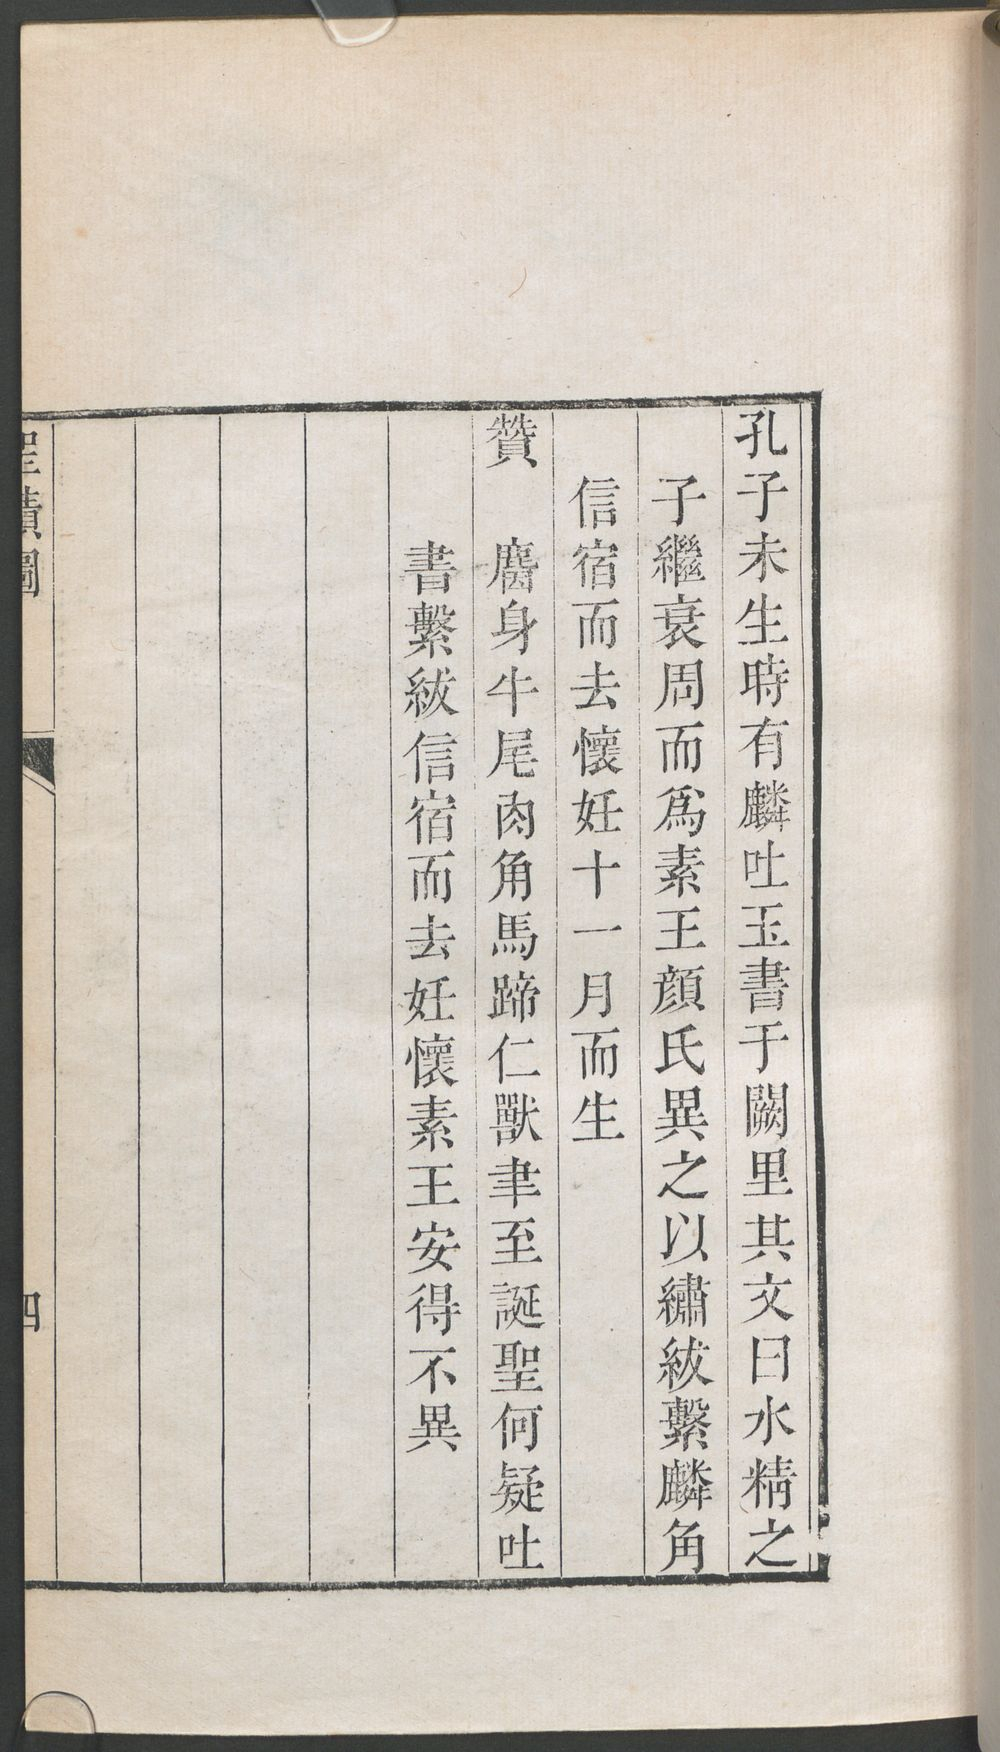 孔子未生時有麟吐玉書于闕里其文曰水精之
子繼衰周而爲素王顏氏異之以繡紱繫麟角
信宿而去懷妊十一月而生
贊　麕身牛尾肉角馬蹄仁獸聿至誕聖何疑吐
書繫紱信宿而去妊懷素王安得不異
聖蹟圖
四